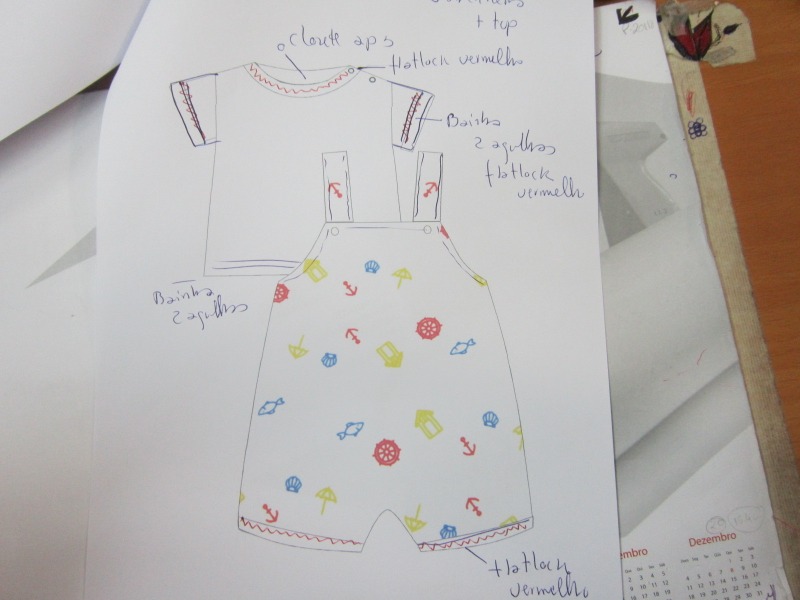 + top
clorete aps
flatlock vermelho
Bainha
2 agulhas
flatlock
vermelho
Bainha
2 agulhas
flatlock
vermelho
Dezembro